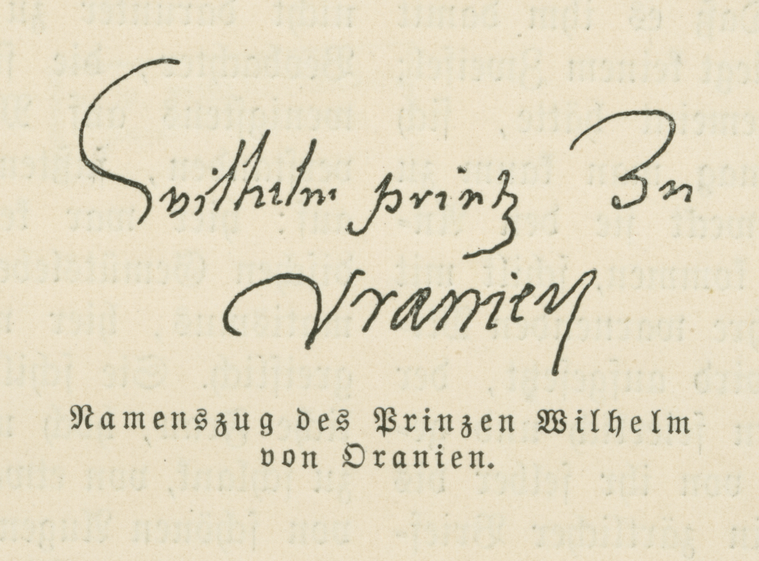 Wilhelm printz Zu
Vranien
Namenszug des Prinzen Wilhelm
von Oranien.